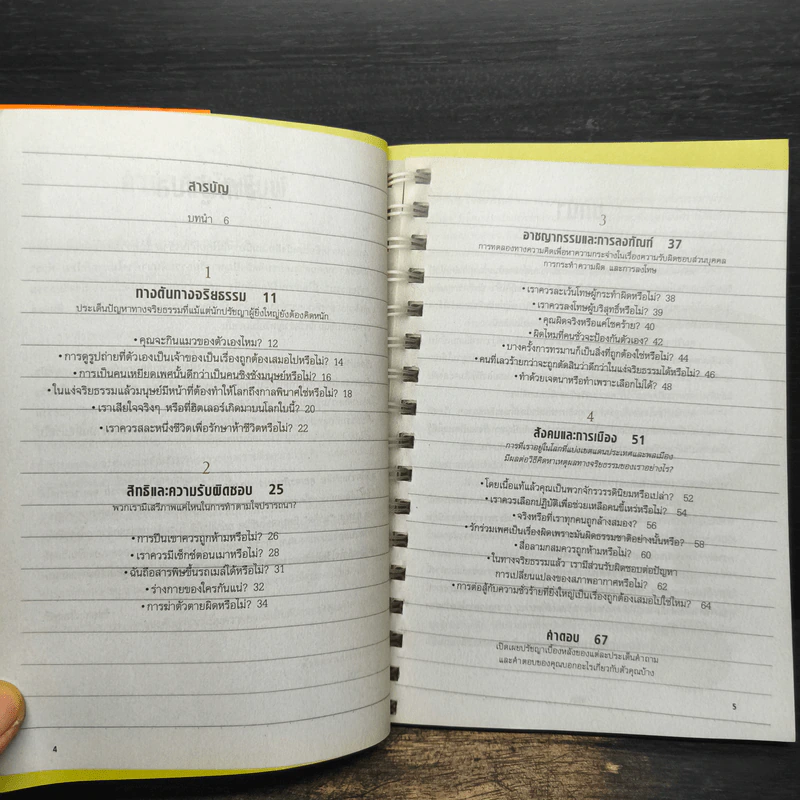 สารบัญ
บทนำ 6
1
ทางตันทางจริยธรรม 11
ประเด็นปัญหาทางจริยธรรมที่แม้แต่นักปรัชญาผู้ยิ่งใหญ่ยังต้องคิดหนัก
• คุณจะกินแมวของตัวเองไหม? 12
• การดูรูปถ่ายที่ตัวเองเป็นเจ้าของเป็นเรื่องถูกต้องเสมอไปหรือไม่? 14
• การเป็นคนเหยียดเพศนั้นดีกว่าเป็นคนชิงชังมนุษย์หรือไม่? 16
• ในแง่จริยธรรมแล้วมนุษย์มีหน้าที่ต้องทำให้โลกถึงกาลพินาศใช่หรือไม่? 18
• เราเสียใจจริงๆ หรือที่ฮิตเลอร์เกิดมาบนโลกใบนี้? 20
• เราควรสละหนึ่งชีวิตเพื่อรักษาห้าชีวิตหรือไม่? 22
2
สิทธิและความรับผิดชอบ 25
พวกเรามีเสรีภาพแค่ไหนในการทำตามใจปรารถนา?
• การปีนเขาควรถูกห้ามหรือไม่? 26
• เราควรมีเซ็กซ์ตอนเมาหรือไม่? 28
• ฉันถือสารพิษขึ้นรถเมล์ได้หรือไม่? 31
• ร่างกายของใครกันแน่? 32
• การฆ่าตัวตายผิดหรือไม่? 34
4
3
อาชญากรรมและการลงทัณฑ์ 37
การทดลองทางความคิดเพื่อหาความกระจ่างในเรื่องความรับผิดชอบส่วนบุคคล
การกระทำความผิด และการลงโทษ
• เราควรละเว้นโทษผู้กระทำผิดหรือไม่? 38
• เราควรลงโทษผู้บริสุทธิ์หรือไม่? 39
• คุณผิดจริงหรือแค่โชคร้าย? 40
• ผิดไหมที่คนชั่วจะป้องกันตัวเอง? 42
• บางครั้งการทรมานก็เป็นสิ่งที่ถูกต้องใช่หรือไม่? 44
• คนที่เลวร้ายกว่าจะถูกตัดสินว่าดีกว่าในแง่จริยธรรมได้หรือไม่? 46
• ทำด้วยเจตนาหรือทำเพราะเลือกไม่ได้? 48
4
สังคมและการเมือง 51
การที่เราอยู่ในโลกที่แบ่งเขตแดนประเทศและพลเมือง
มีผลต่อวิธีคิดหาเหตุผลทางจริยธรรมของเราอย่างไร?
• โดยเนื้อแท้แล้วคุณเป็นพวกจักรวรรดินิยมหรือเปล่า? 52
• เราควรเลือกปฏิบัติเพื่อช่วยเหลือคนขี้เหร่หรือไม่? 54
• จริงหรือที่เราทุกคนถูกล้างสมอง? 56
• รักร่วมเพศเป็นเรื่องผิดเพราะมันผิดธรรมชาติอย่างนั้นหรือ? 58
• สื่อลามกสมควรถูกห้ามหรือไม่? 60
• ในทางจริยธรรมแล้ว เรามีส่วนรับผิดชอบต่อปัญหา
การเปลี่ยนแปลงของสภาพอากาศหรือไม่? 62
• การต่อสู้กับความชั่วร้ายที่ยิ่งใหญ่เป็นเรื่องถูกต้องเสมอไปใช่ไหม? 64
คำตอบ 67
เปิดเผยปรัชญาเบื้องหลังของแต่ละประเด็นคำถาม
และคำตอบของคุณบอกอะไรเกี่ยวกับตัวคุณบ้าง
5